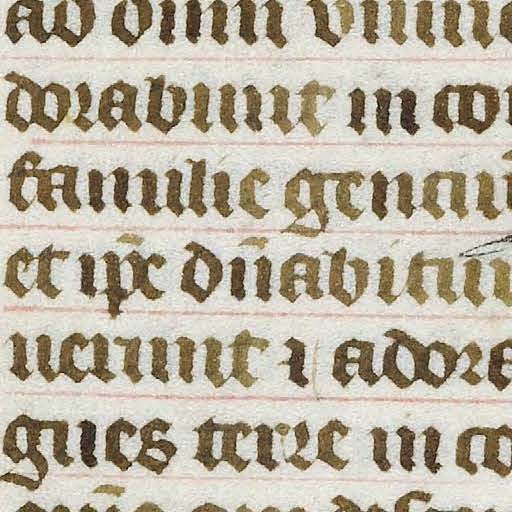 ad dnm vniu
dorabunt in co
familie gentiu
et ip̄e dn̄abitur
uerunt ⁊ adora
gues terre in co